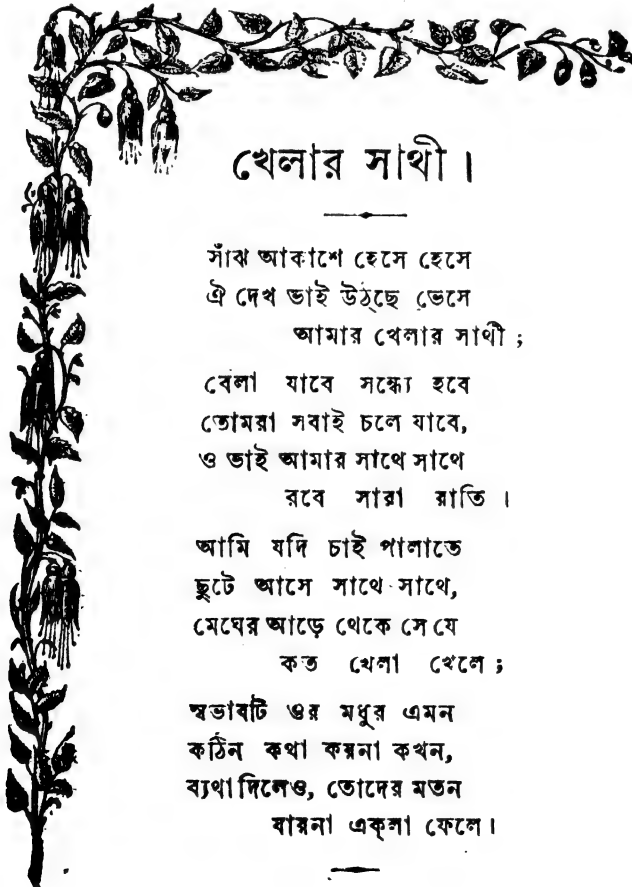 খেলার সাথী।
সাঁঝ আকাশে হেসে হেসে
ঐ দেখ ভাই উঠ্‌ছে ভেসে
আমার খেলার সাথী ;
বেলা যাবে সন্ধ্যে হবে
তোমরা সবাই চলে যাবে,
ও ভাই আমার সাথে সাথে
রবে সারা রাতি ।
আমি যদি চাই পালাতে
ছুটে আসে সাথে সাথে,
মেঘের আড়ে থেকে সে যে
কত খেলা খেলে ;
স্বভাবটি ওর মধুর এমন
কঠিন কথা কয়না কখন,
ব্যথা দিলেও, তোদের মতন
যায়না এক্‌লা ফেলে।